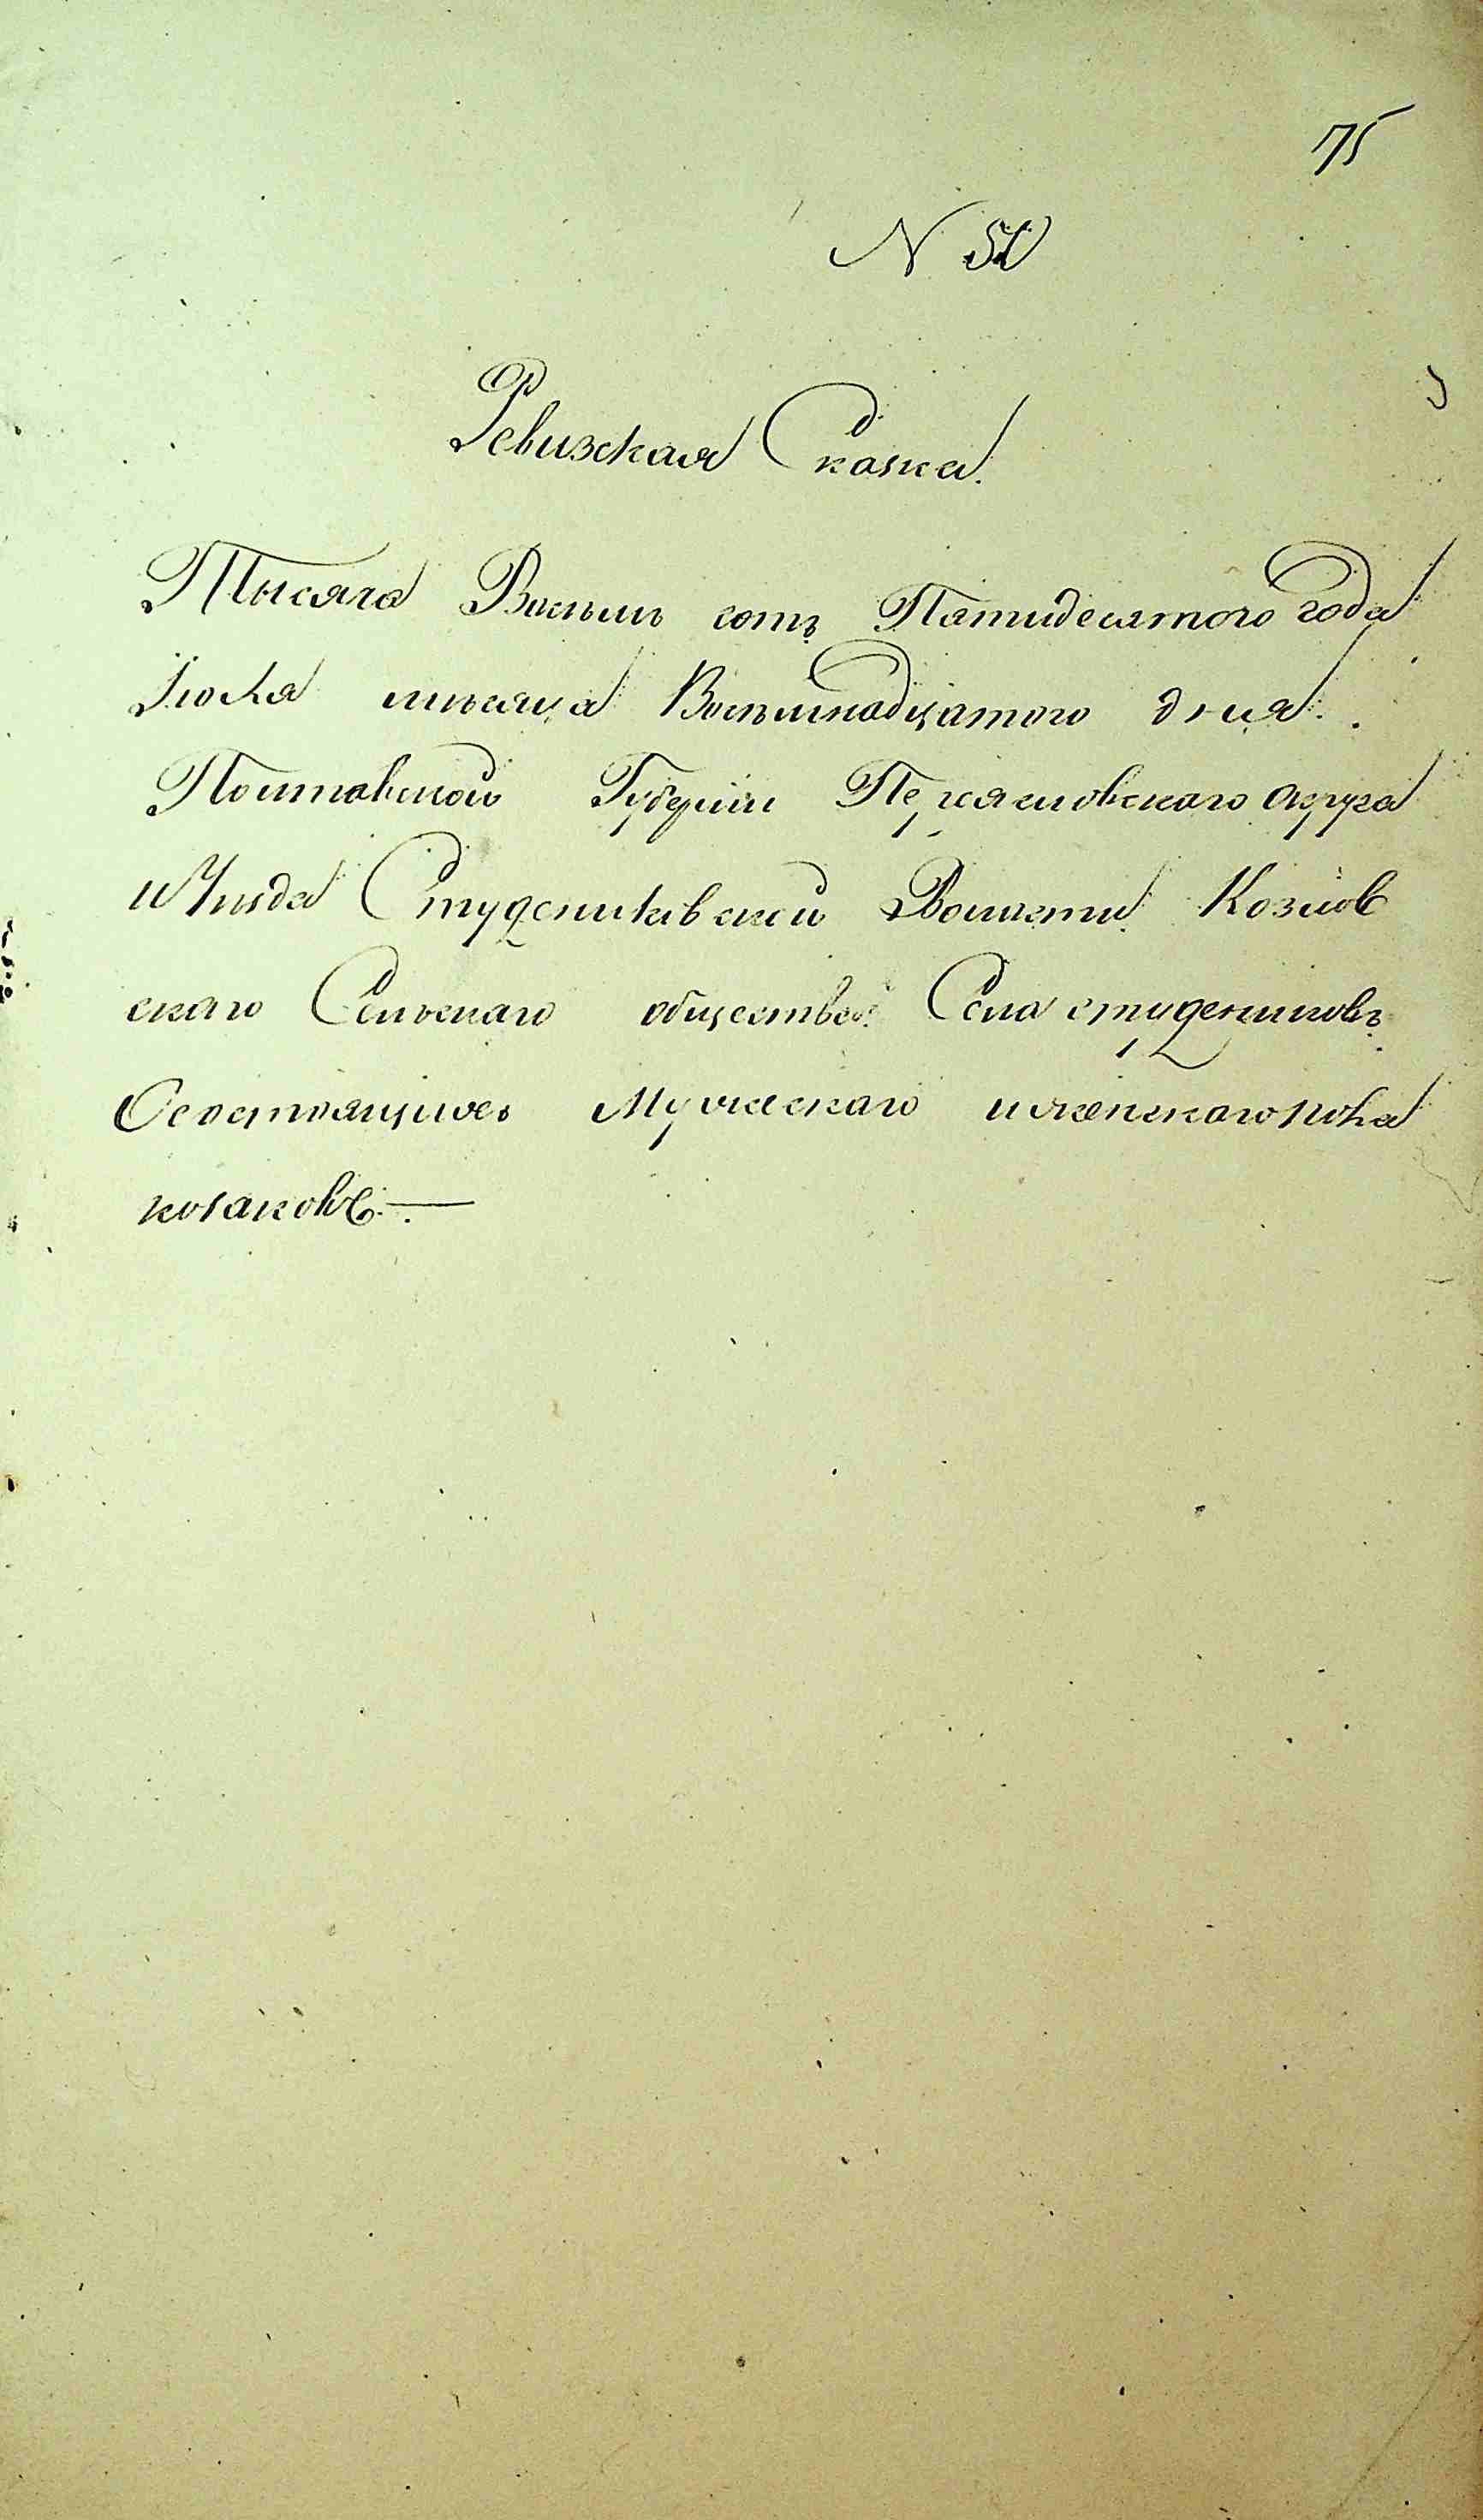 75
N 50
Ревизская Сказка.
Тысяча Восемь сотъ Пятидесятого года
Іюля мѣсяца Восемнадцатого дня.
Полтавской Губерніи Переяславскаго Округа
и Уѣзда Студениковской Волости Козлов
скаго Сельскаго общества Села студениковъ
О состоящихъ Мужескаго и женскаго пола
козаковъ.—